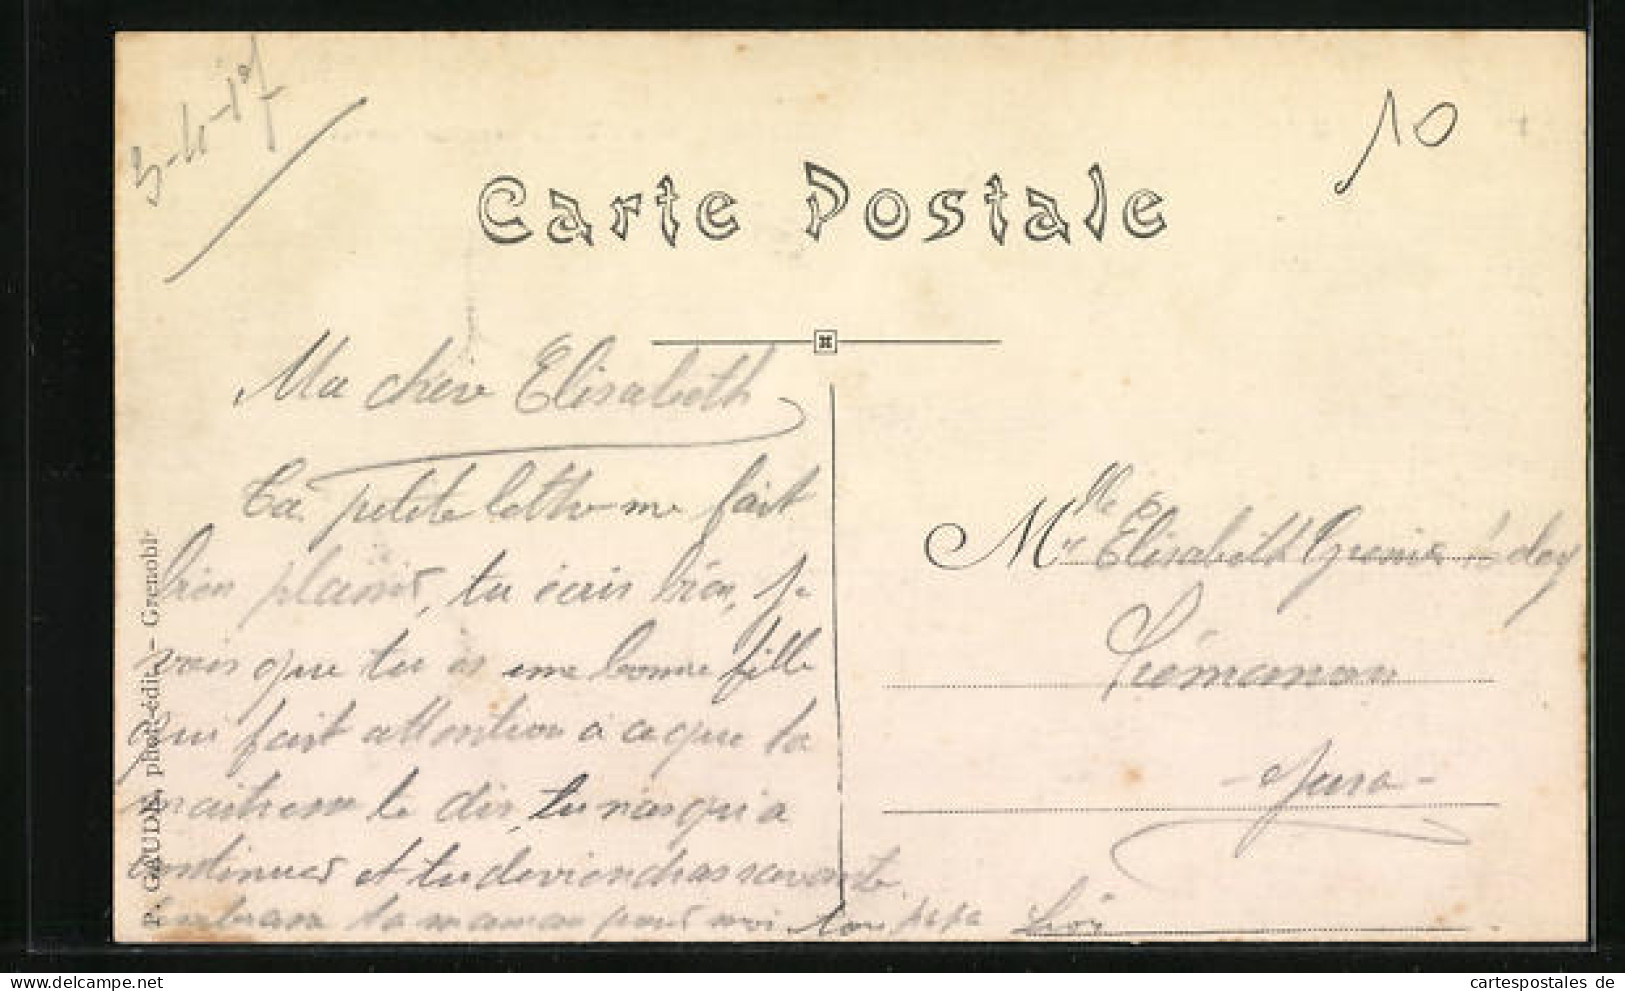 3-4-17
10
Carte Postale
Ma chère Elisabeth
Ta petite lettre me fait
bien plaisir, tu écris bien, je
vois que tu es une bonne fille
qui fait attention à ce que ta
maitresse te dis, tu n'as qu'a
continuer et tu deviendras savante
embrasse ta maman pour moi ton papa
M
lle
Elisabeth Grenier
Prémanon
- Jura -
P. GAUDE, phot.-édit. - Grenoble
cartespostales de